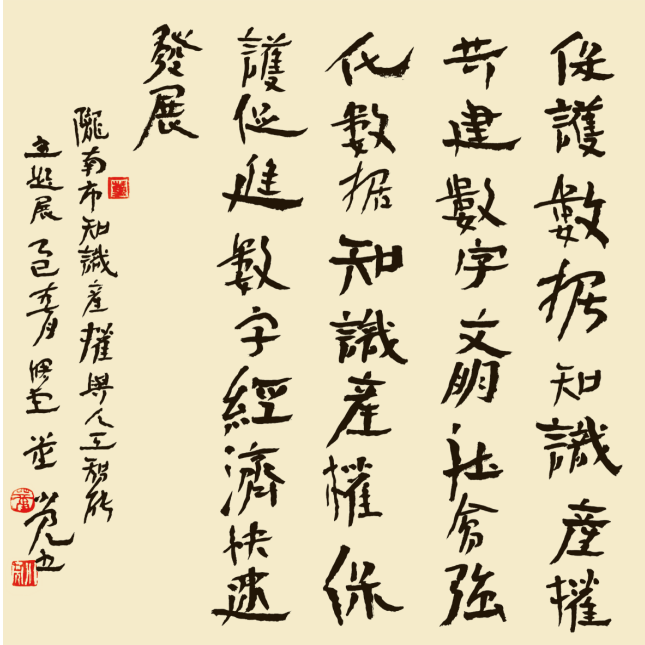 保護數据知識産權
共建數字文明社會強
化數据知識産權保
護促進數字經濟快速
發展
隴南市知識産權與人工智能
主題展乙巳